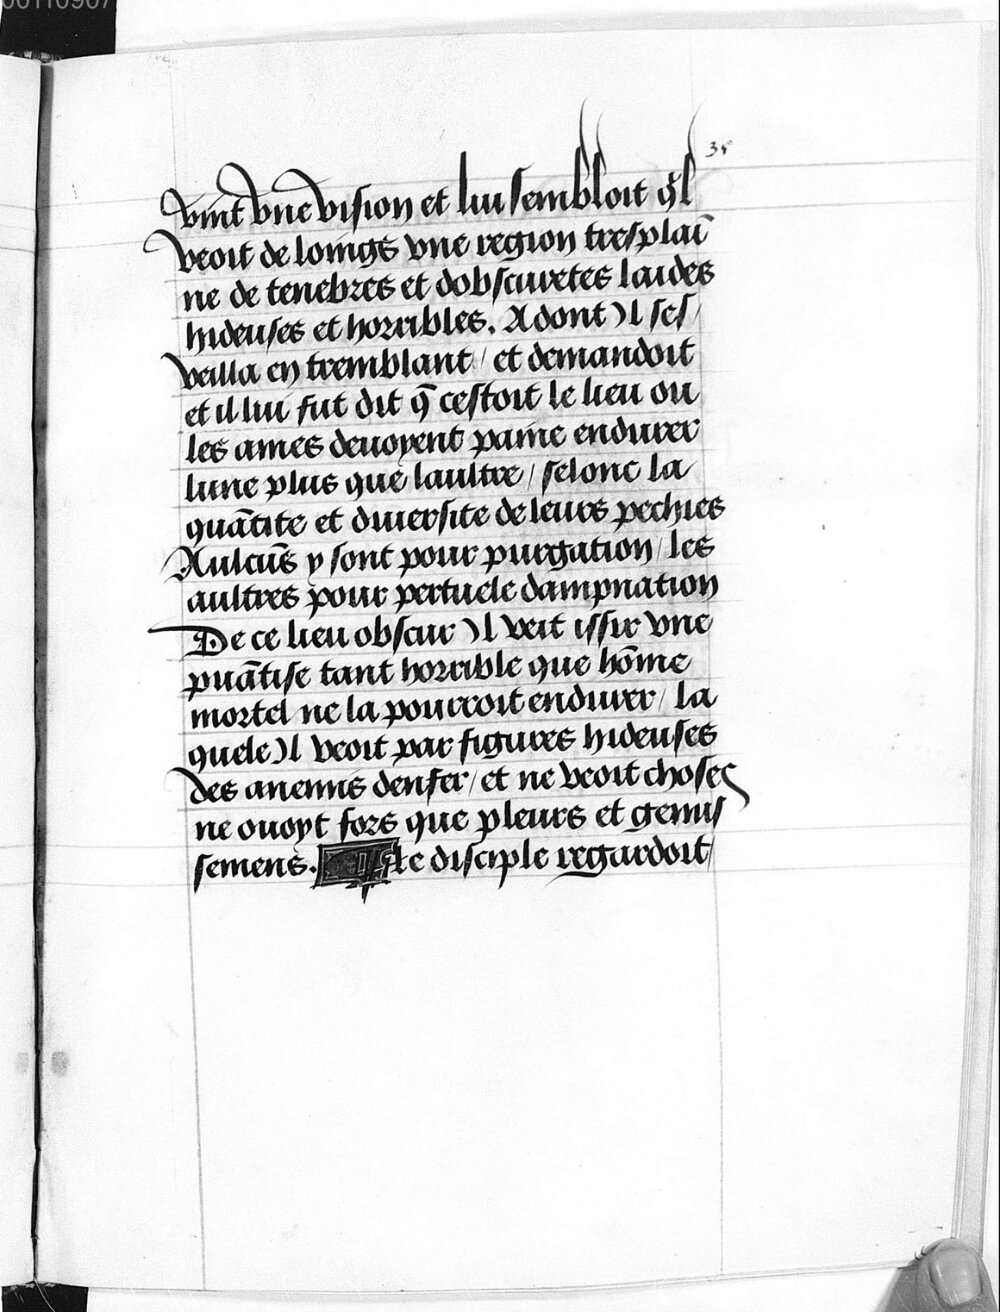 00110907
35
vint vne vision et lui sembloit q̃l
veoit de loings vne region tresplaī
ne de tenebres et dobscuretes laides
hideuses et horribles. Adont Il ses/
veilla en tremblant / et demandoit
et il lui fut dit q̃ cestoit le lieu ou
les ames deuoyent paine endurer
lune plus que laultre / selonc la
quātite et diuersite de leurs pechies
Aulcūs y sont pour purgation / les
aultres pour pertuele dampnation
De ce lieu obscur Il veit issir vne
puātise tant horrible que hōme
mortel ne la pourroit endurer / la
quele Il veoit par figures hideuses
des anemis denfer / et ne veoit choses
ne ouoyt fors que pleurs et gemis/
semens. te disciple regardoit/